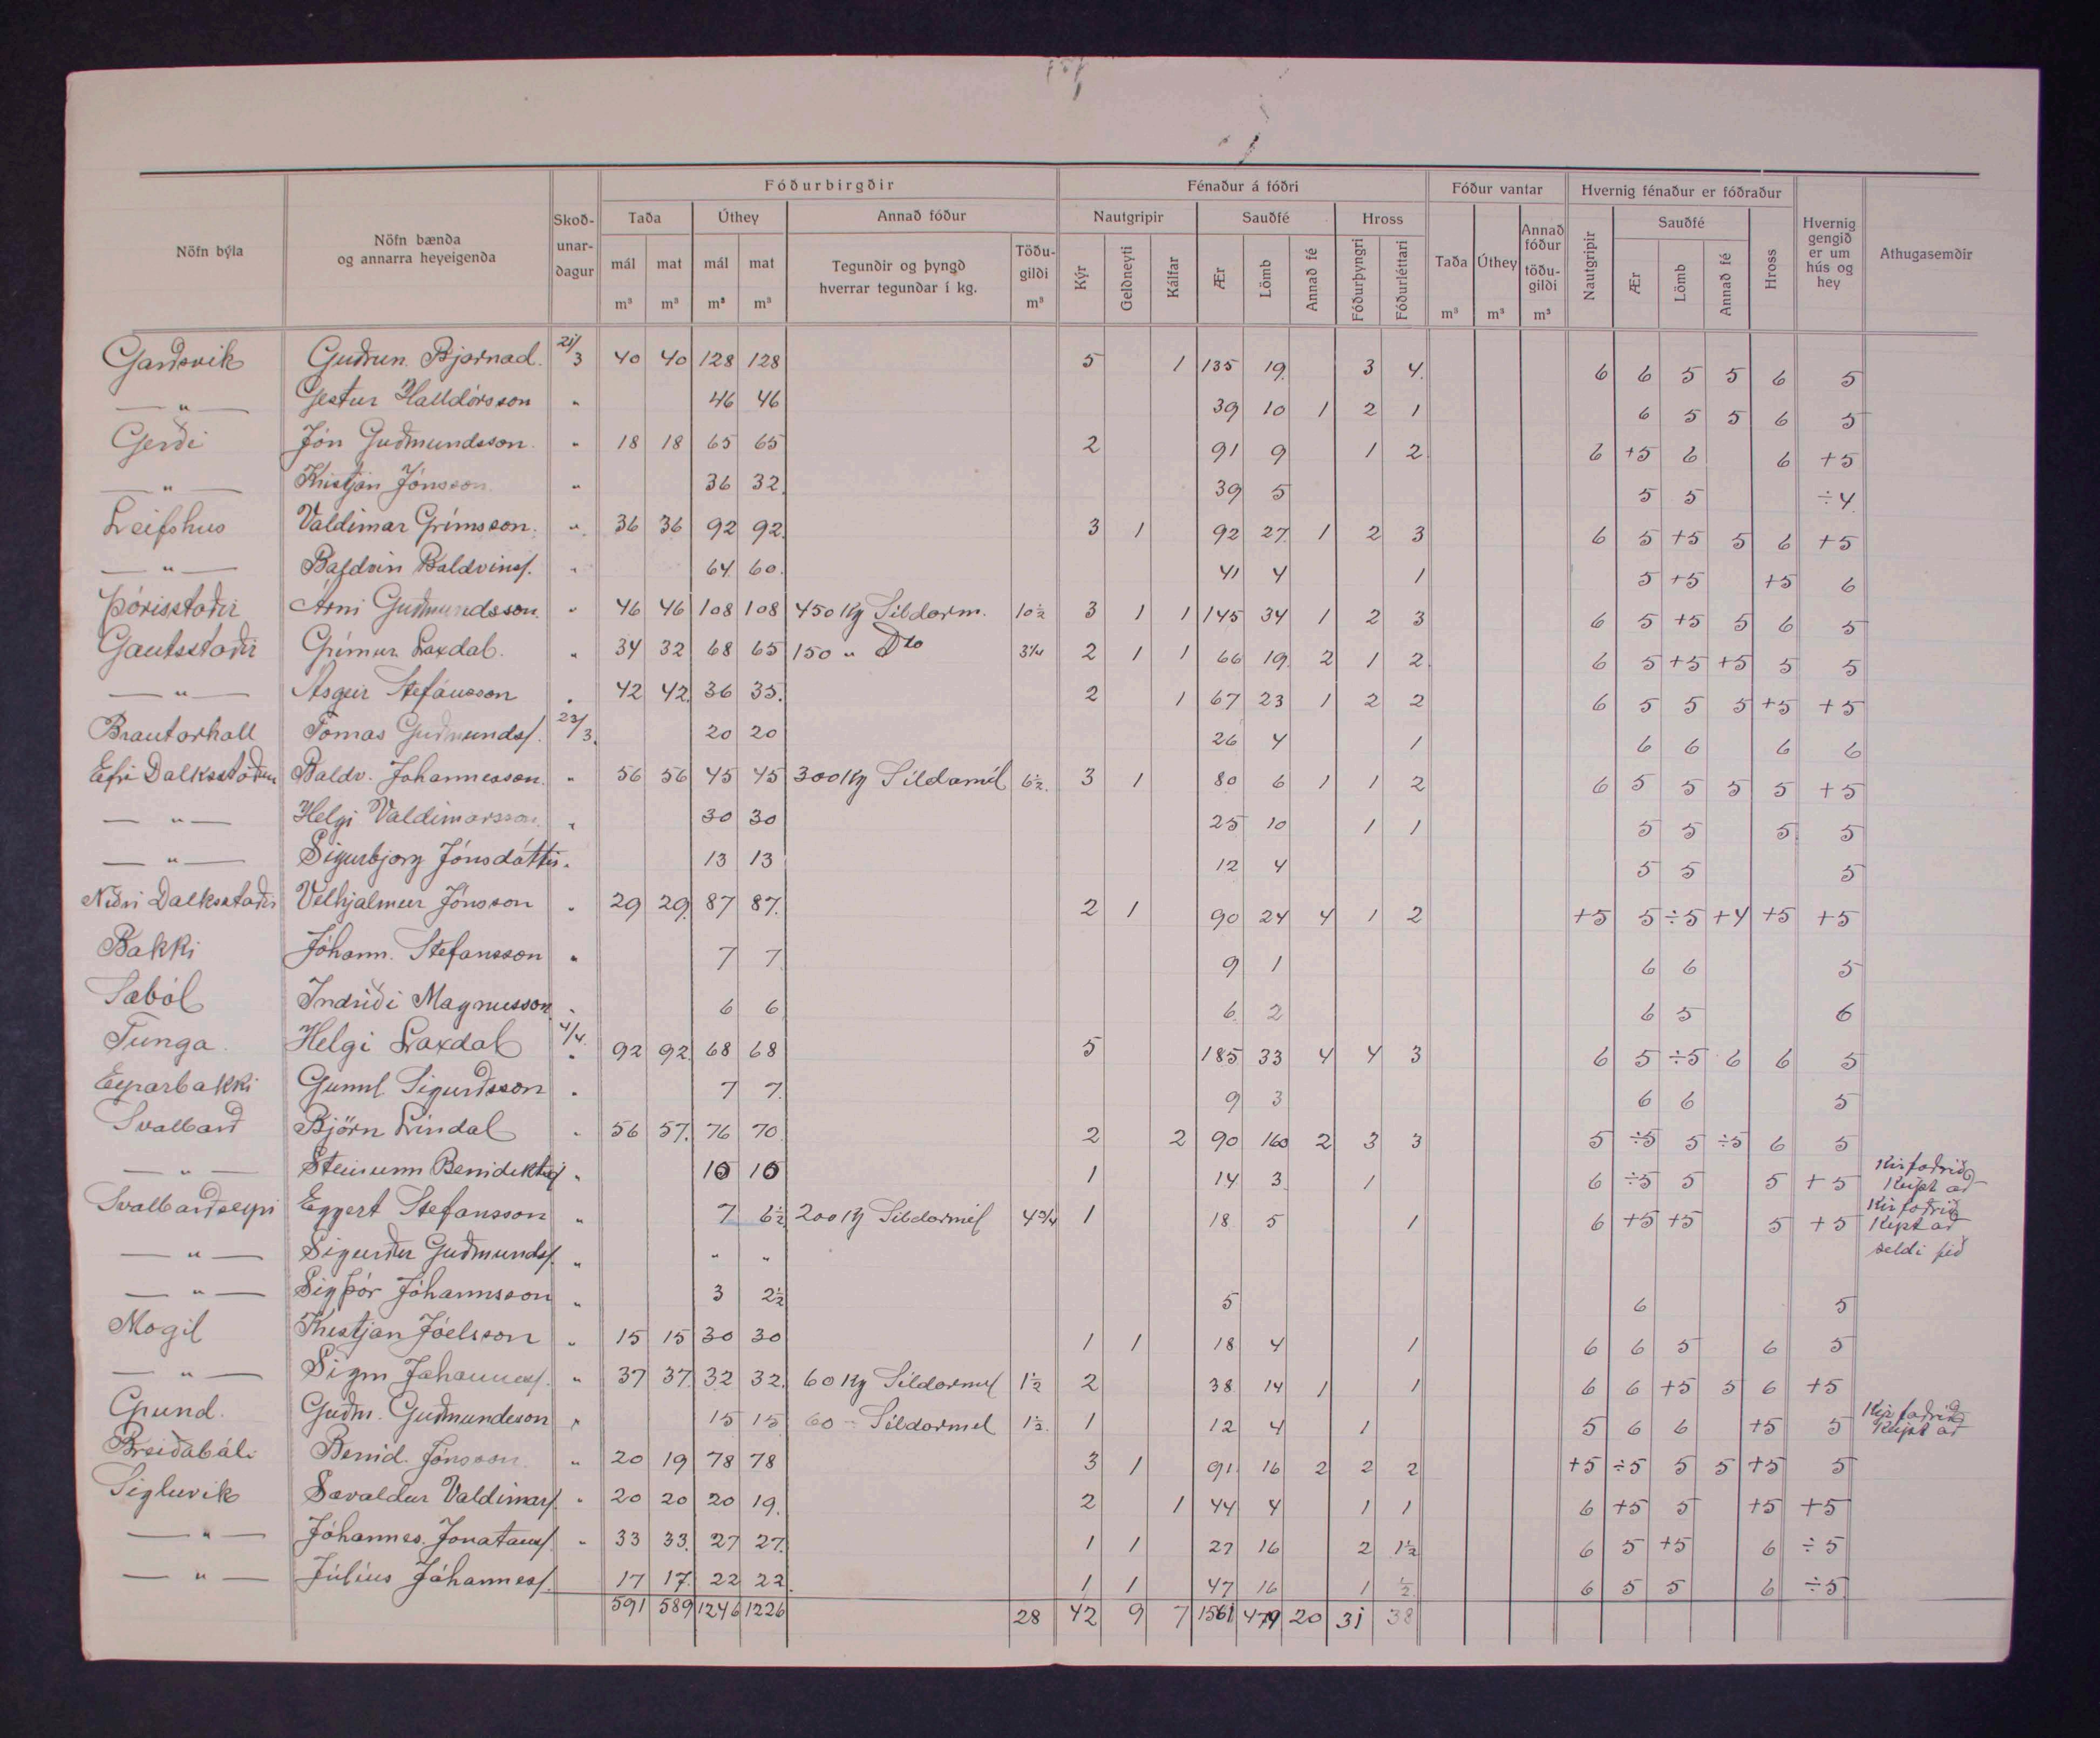 Fóðurbirgðir Fénaður á fóðri Fóður vantar Hvernig fénaður er fóðraður
Nöfn býla Nöfn bænda og annarra heyeigenda Skoð-unar-dagur Taða Úthey Annað fóður Nautgripir Sauðfé Hross Taða Úthey Annað fóður töðu-gildi Nautgripir Sauðfé Hross Hvernig gengið er um hús og hey Athugasemdir
mál mat mál mat Tegundir og þyngd hverrar tegundar í kg. Töðu-gildi Kýr Geldneyti Kálfar Ær Lömb Annað fé Fóðurþyngri Fóðurléttari Ær Lömb Annað fé
m³ m³ m³ m³ m³ m³ m³ m³
Garðsvik Guðrun Bjarnad. 21/3 40 40 128 128 5 1 135 19 3 4 6 6 5 5 6 5
— " — Gestur Halldórsson " 46 46 39 10 1 2 1 6 5 5 6 5
Gerði Jón Guðmundsson " 18 18 65 65 2 91 9 1 2 6 +5 6 6 +5
— " — Kristján Jónsson " 36 32 39 5 5 5 ÷4
Leifshus Valdimar Grímsson " 36 36 92 92 3 1 92 27 1 2 3 6 5 +5 5 6 +5
— " — Baldvin Baldvinss. " 64 60 41 4 1 5 +5 +5 6
Þórisstaðir Árni Guðmundsson " 46 46 108 108 450 Kg Síldarm. 10½ 3 1 1 145 34 1 2 3 6 5 +5 5 6 5
Gautsstaðir Grímur Laxdal " 34 32 68 65 150 " Dto 3¼ 2 1 1 66 19 2 1 2 6 5 +5 +5 5 5
— " — Ásgeir Stefánsson " 42 42 36 35 2 1 67 23 1 2 2 6 5 5 5 +5 +5
Brautarholl Tomas Guðmundss. 23/3 20 20 26 4 1 6 6 6 6
Efri Dalksstöðum Baldv. Johannesson " 56 56 45 45 300 Kg Síldamél 6½ 3 1 80 6 1 1 2 6 5 5 5 5 +5
— " — Helgi Valdimarsson " 30 30 25 10 1 1 5 5 5 5
— " — Sigurbjorg Jónsdóttir " 13 13 12 4 5 5 5
Niðri Dalksstaðir Vilhjalmur Jónsson " 29 29 87 87 2 1 90 24 4 1 2 +5 5 ÷5 +4 +5 +5
Bakki Jóhann Stefansson " 7 7 9 1 6 6 5
Sæból Indriði Magnusson " 6 6 6 2 6 5 6
Tunga Helgi Laxdal 4/4 " 92 92 68 68 5 185 33 4 4 3 6 5 ÷5 6 6 5
Eyrarbakki Gunnl. Sigurðsson " 7 7 9 3 6 6 5
Svalbarð Björn Líndal " 56 57 76 70 2 2 90 160 2 3 3 5 ÷5 5 ÷5 6 5
— " — Steinunn " 15 15 1 14 3 1 6 ÷5 5 5 +5 Kirfoðrið Keipt að
Svalbarðseyri Eggert Stefansson " 7 6½ 200 Kg Síldarmél 4¾ 1 18 5 1 6 +5 +5 5 +5 Kirfoðrið Kept að
— " — Sigurður Guðmundss. " " " seldi féð
— " — Sigþór Jóhannsson " 3 2½ 5 6 5
Mógil Kristjan Jóelsson " 15 15 30 30 1 1 18 4 1 6 6 5 6 5
— " — Sigm Johanness. " 37 37 32 32 60 Kg Síldarmel 1½ 2 38 14 1 1 6 6 +5 5 6 +5
Grund Guðm. Guðmundsson " 15 15 60 " Síldarmel 1½ 1 12 4 1 5 6 6 +5 5 Kirfoðrið Keipt að
Breiðaból Benid. Jónsson " 20 19 78 78 3 1 91 16 2 2 2 +5 ÷5 5 5 +5 5
Sigluvik Sævaldur Valdimarss. " 20 20 20 19 2 1 44 4 1 1 6 +5 5 +5 +5
— " — Jóhannes Jonatanss. " 33 33 27 27 1 1 27 16 2 1½ 6 5 +5 6 ÷5
— " — Júlíus Jóhanness. 17 17 22 22 1 1 47 16 1 ½ 6 5 5 6 ÷5
591 589 1246 1226 28 42 9 7 1561 479 20 31 38